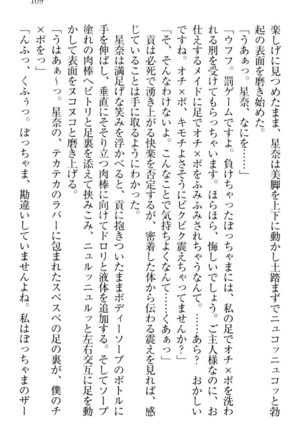 109
楽しげに見つめたまま、星奈は美脚を上下に動かし土踏まずでニュコッニュコッと勃
起の表面を磨き始めた。
「うああっ。星奈、なにを──」
「ウフフ。罰ゲームですよ。負けちゃったぼっちゃまには、私の足でオチ×ポを洗わ
れる刑を受けてもらっちゃいます。ほらほら、悔しいでしょう。ご主人様なのに、お
仕えするメイドに足でオチ×ポをふみふみされちゃうなんて。……あら？　おかしい
ですね。オチ×ポ、キモチよさそうにビクビク震えちゃってますよ？」
「そ、そんなわけないよ。こんなことで気持ちよくなんて……くああっ」
貢は必死で湧き上がる快楽を否定するが、密着した体から伝わる震えを見れば、感
じていることは手に取るようにわかった。
星奈は満足げな笑みを浮かべると、貢に抱きついたままボディーソープのボトルに
手を伸ばし、垂直にそそり立つ肉棒に向けてドロリと液体を追加する。そしてソープ
塗れの肉棒へピトリと足裏を添えて挟みこみ、ニュルッニュルッと左右交互に足を動
かして表面をヌコヌコと磨き上げる。
「うはあぁ～っ。星奈の、テカテカのラバーに包まれたスベスベの足の裏が、僕のチ
×ポをっ」
「んふっ、くふぅっ。ぼっちゃま、勘違いしていませんよね。私はぼっちゃまのザー